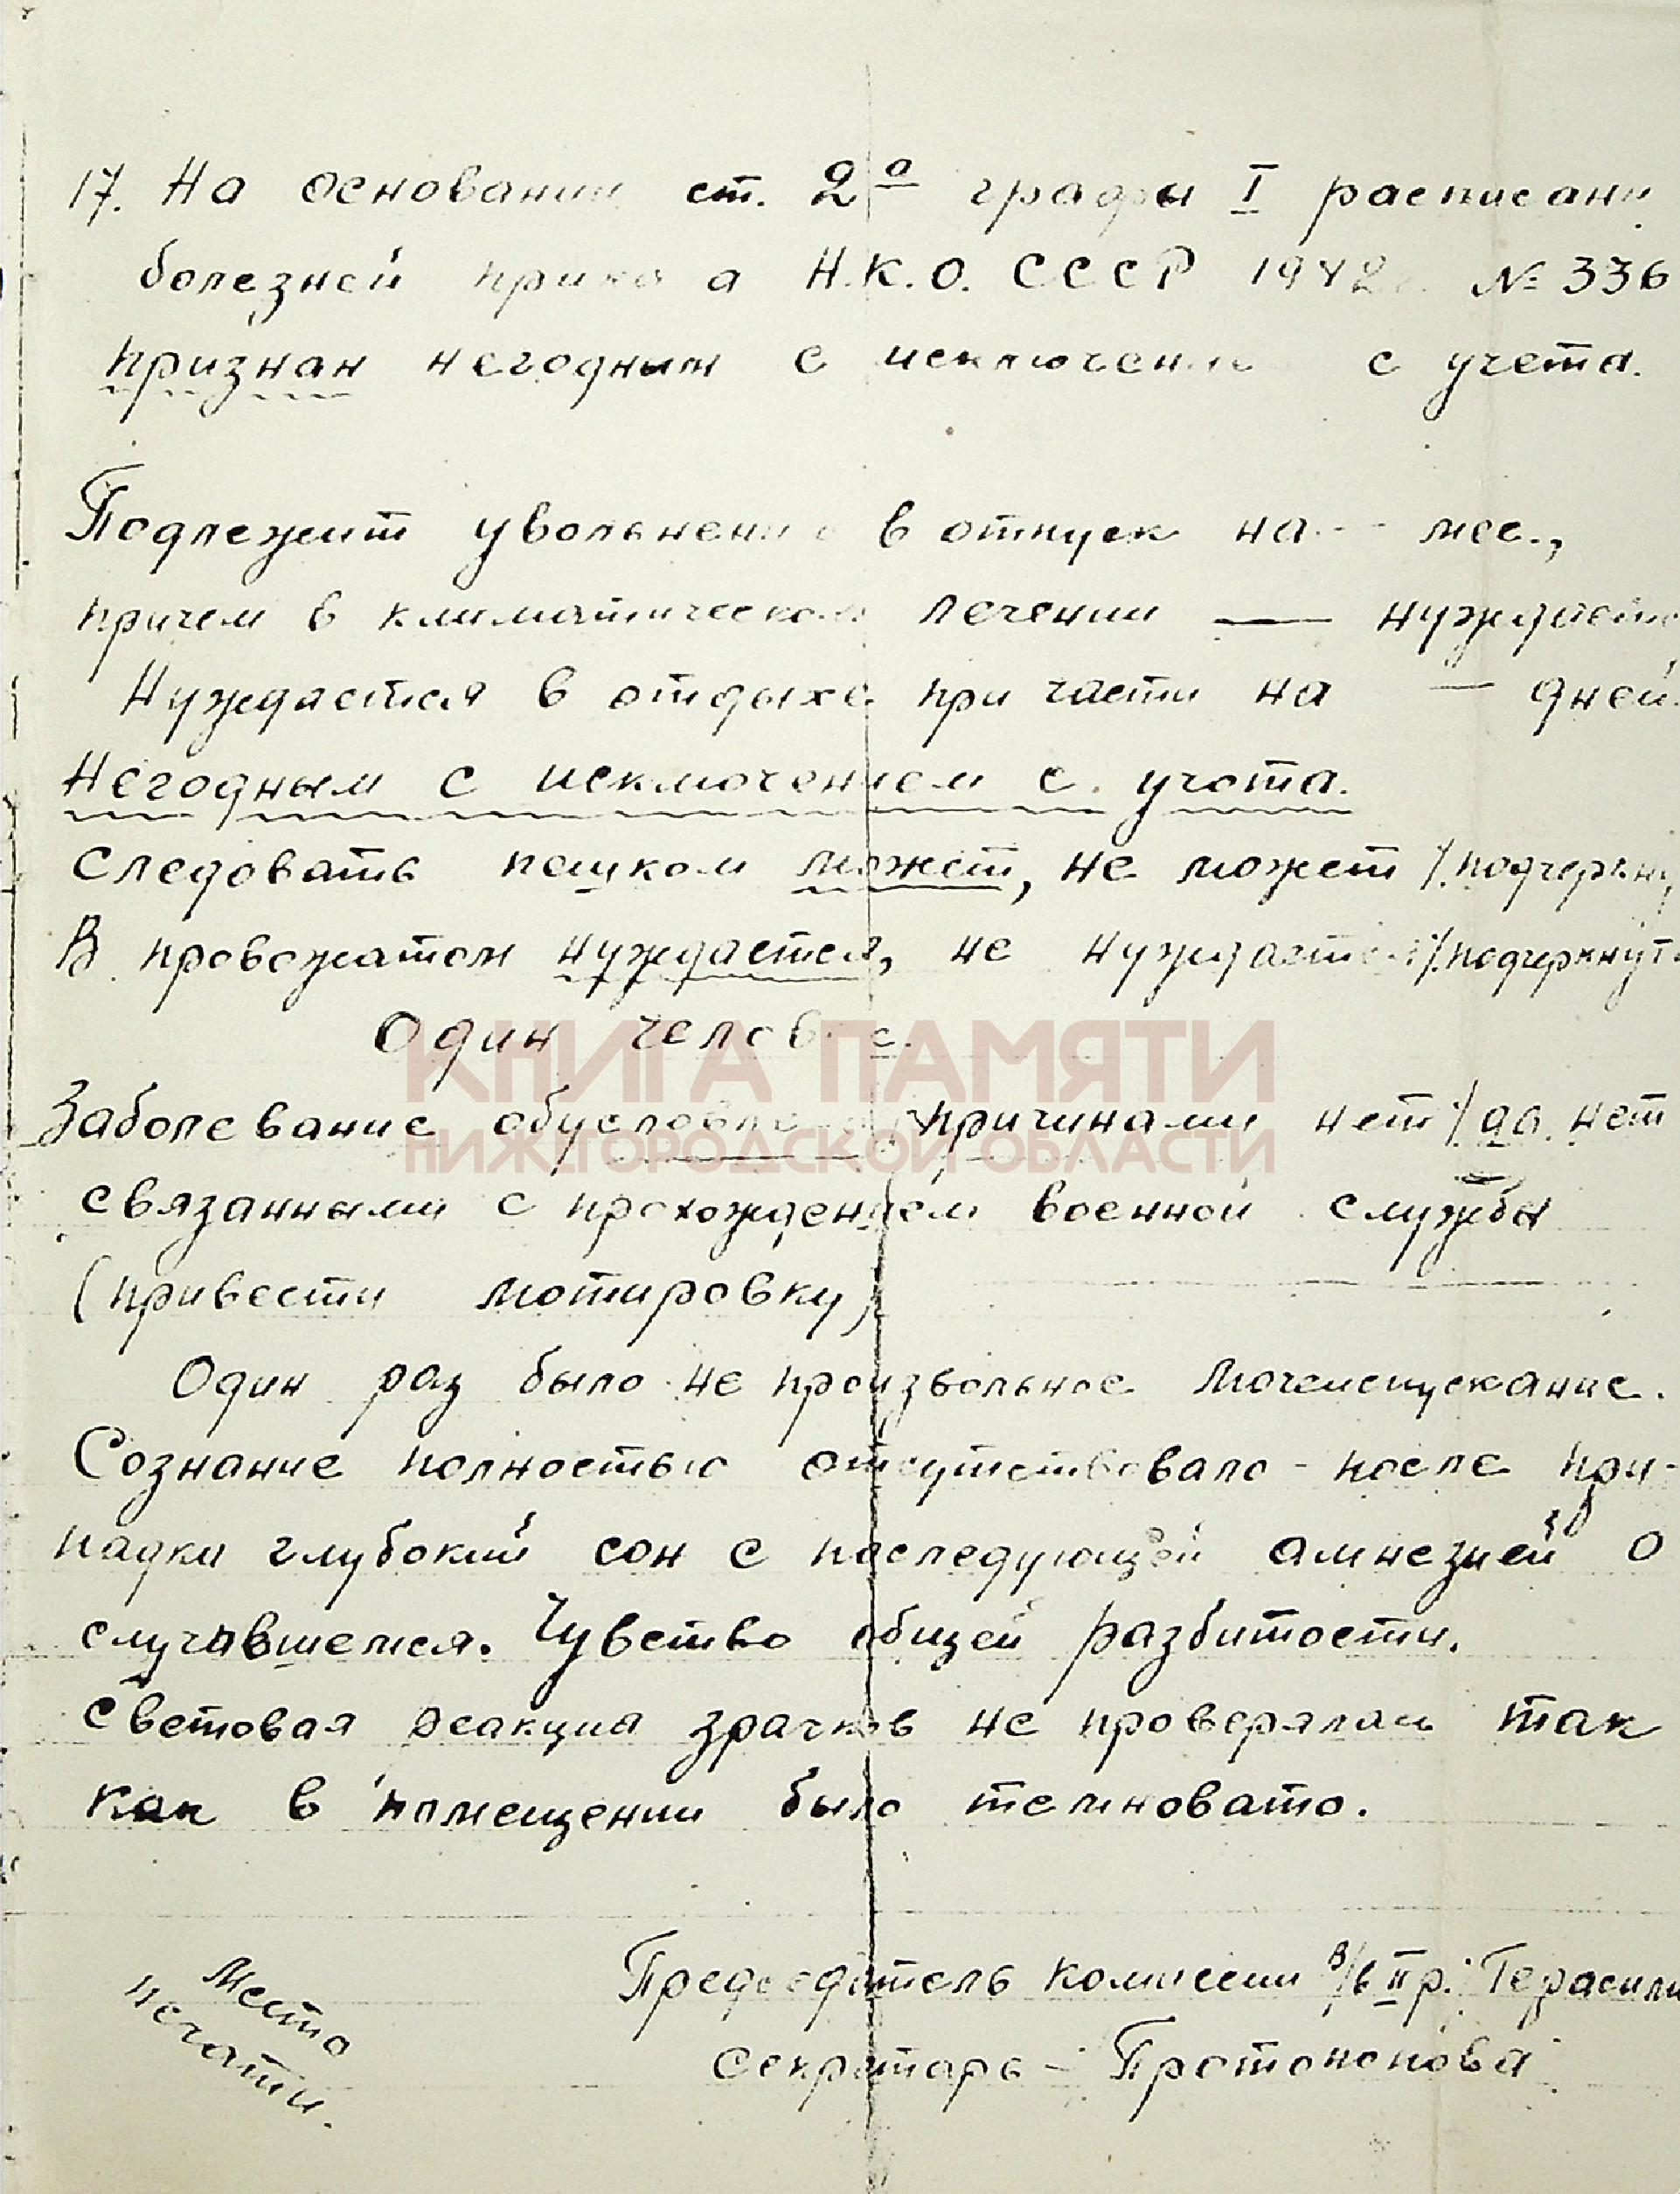 17. На основании ст. 2а графы I расписани
болезней приказа Н.К.О. СССР 1942г. № 336
признан негодным с исключением с учета.
Подлежит увольнению в отпуск на -- мес.,
причем в климатическом лечении — нуждается
Нуждается в отдыхе при части на — дней.
Негодным с исключением с учета.
Следовать пешком может, не может /подчеркну
В провожатом нуждается, не нуждается /.подчеркнуть
Один человек.
КНИГА ПАМЯТИ
Заболевание обусловлено причинами нет / да. нет
НИЖЕГОРОДСКОЙ ОБЛАСТИ
связанными с прохождением военной службы
(привести мотировку)
Один раз было не произвольное мочеиспускание.
Сознание полностью отсутствовало - после при-
падка глубокий сон с последующей амнезией о
случавшемся. Чувство общей разбитости.
Световая реакция зрачков не проверялась так
как в помещении было темновато.
Место
печати.
Председатель комиссии в/в II р. Герасим
Секретарь - Протопопова